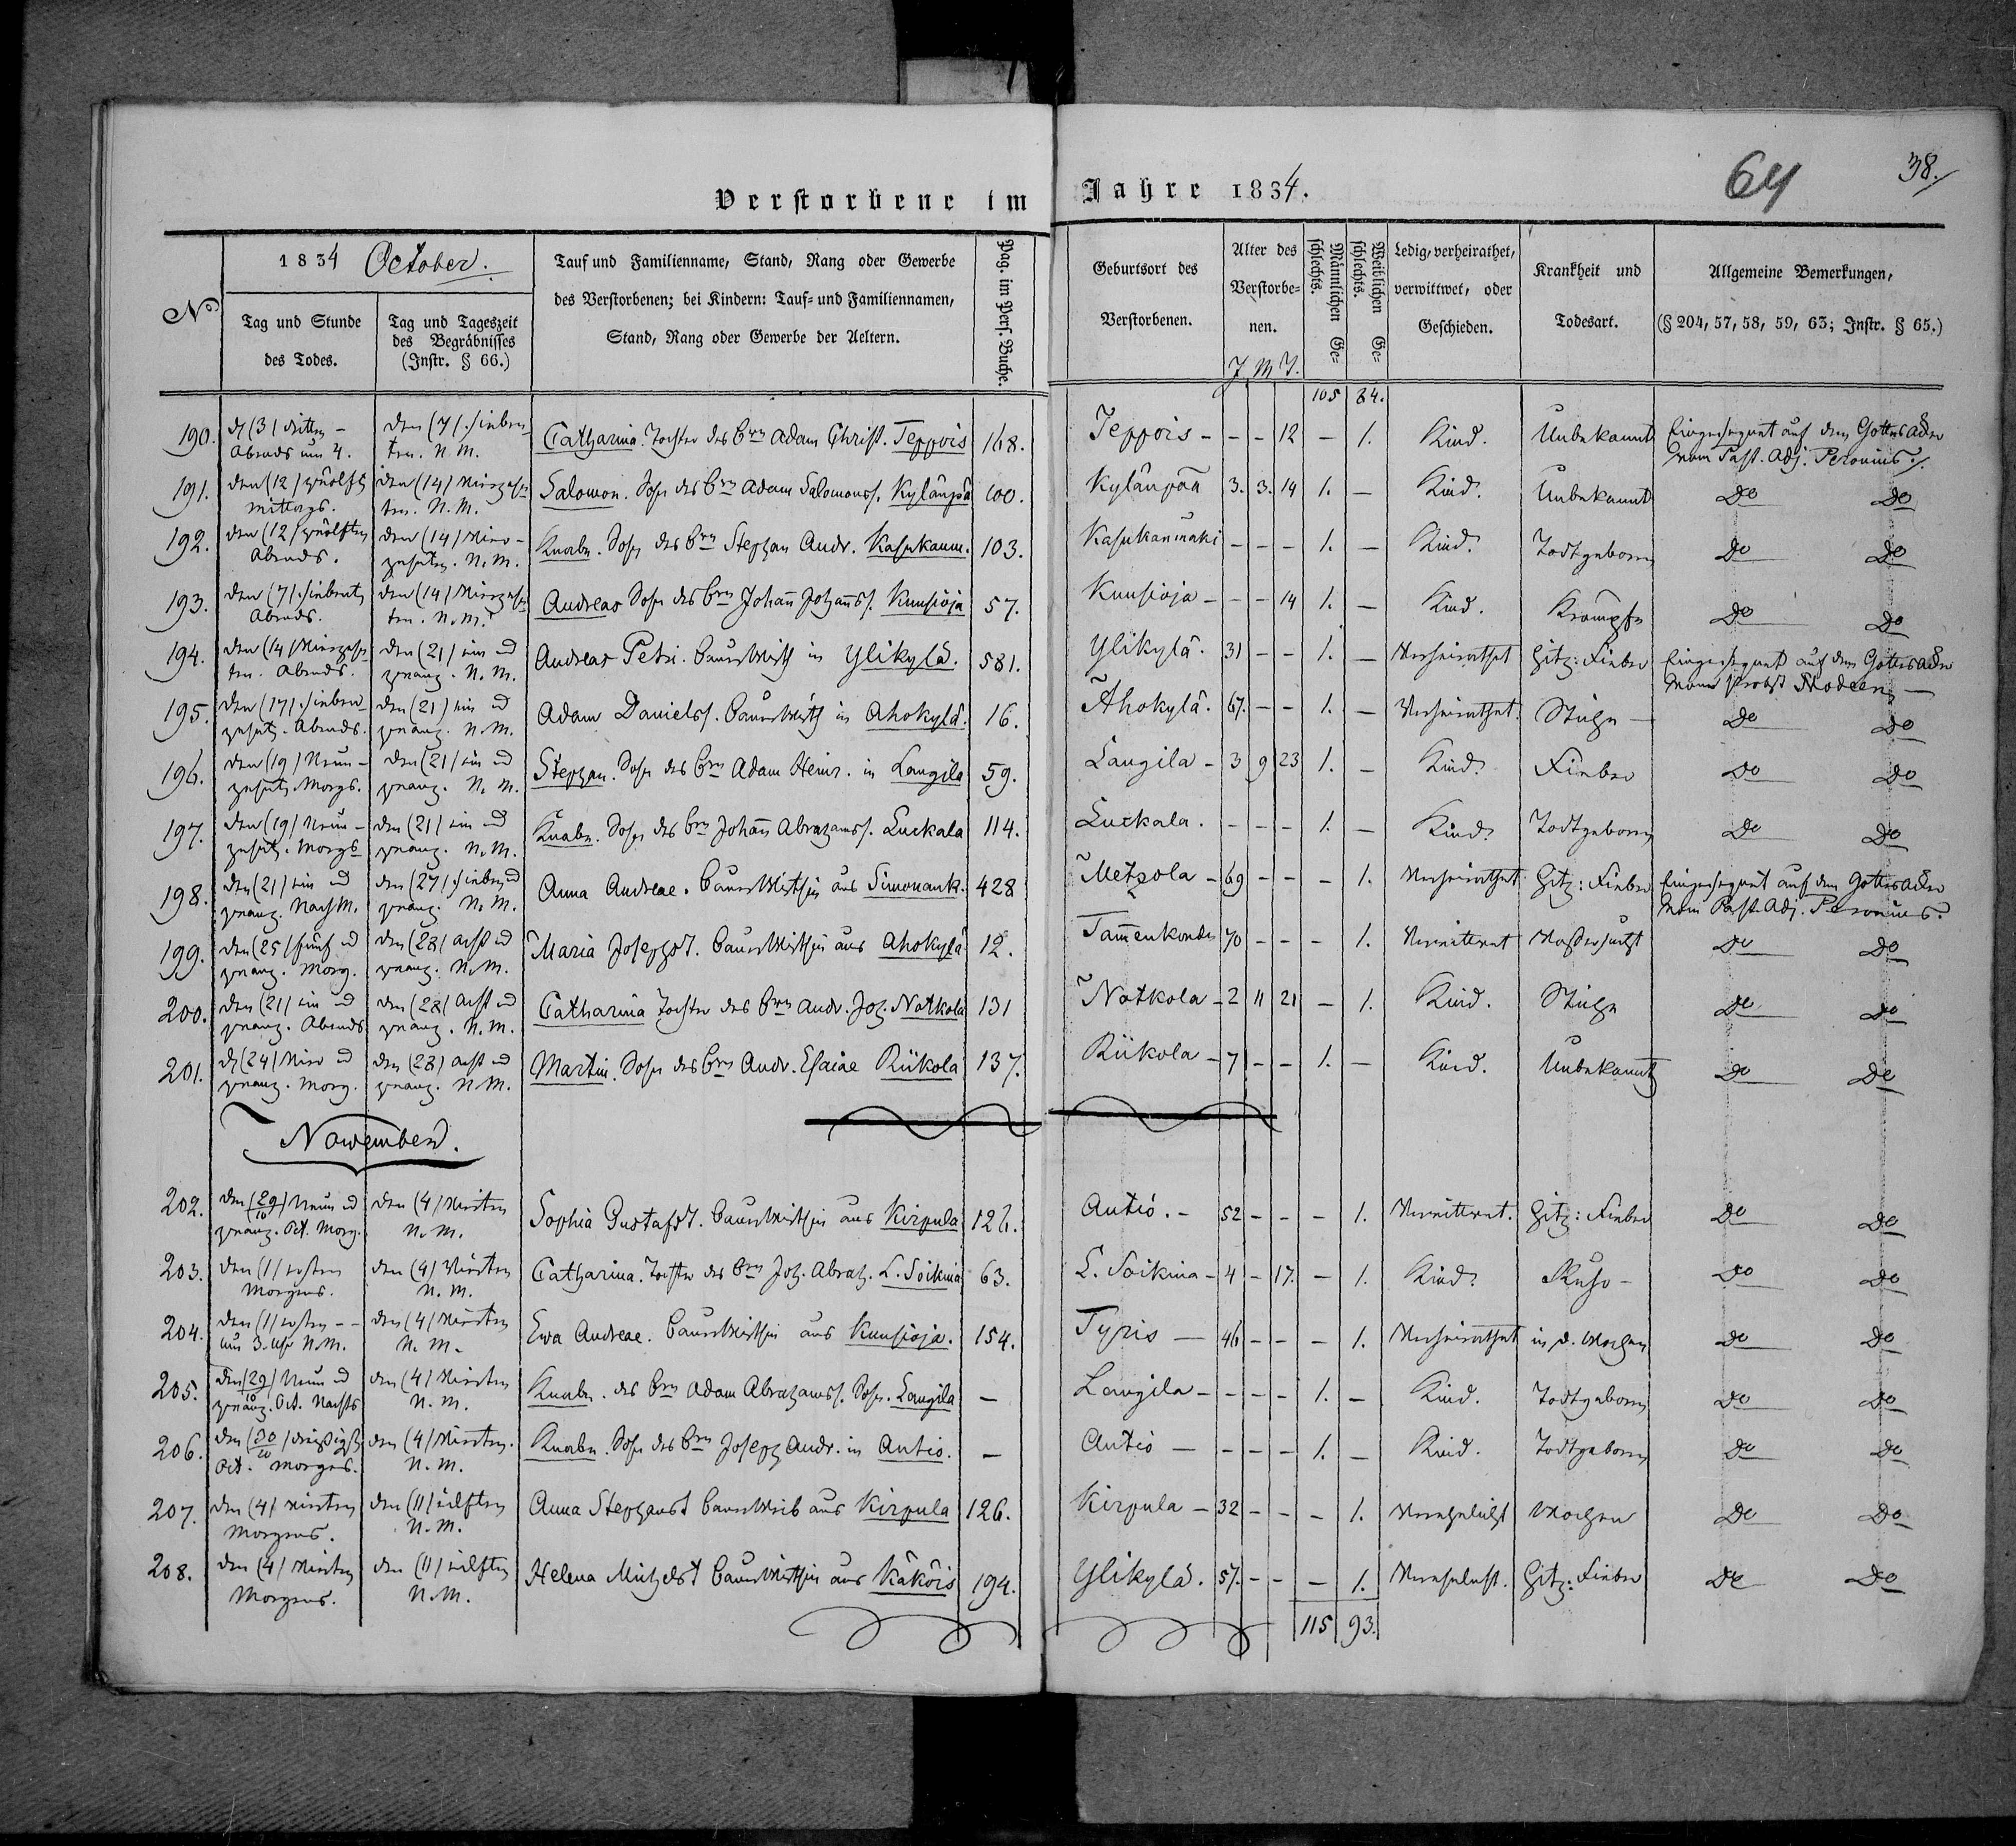 64
38./
Verstorbene im Jahre 1834.
No
1834 October.
Tag und Stunde des Todes.
Tag und Tageszeit des Begräbnisses (Instr. § 66.)
Tauf und Familienname, Stand, Rang oder Gewerbe des Verstorbenen; bei Kindern: Tauf- und Familiennamen, Stand, Rang oder Gewerbe der Aeltern.
Pag. im Pers. Buche.
Geburtsort des Verstorbenen.
Alter des Verstorbenen.
J. M. T.
Männlichen Geschlechts.
Weiblichen Geschlechts.
Ledig, verheirathet, verwittwet, oder Geschieden.
Krankheit und Todesart.
Allgemeine Bemerkungen, (§ 204, 57, 58, 59, 63; Instr. § 65.)
105 84.
190. d (3) dritten – Abends um 4. den (7) siebenten. N. M. Catharina. Tochter des Brn Adam Christ. Teppois 168. Teppois - - - 12 - 1. Kind. Unbekannt Eingesegnet auf dem Gottesacker vom Past. Adj. Petonius.
191. den (12) zwölft mittags. den (14) Vierzehnten. N. M. Salomon. Sohn des Brn Adam Salomonss. Kylänpä 100. Kylänpää 3. 3. 14 1. - Kind. Unbekannt Do Do
192. den (12) zwölften Abends. den (14) Vierzehnten. N. M. Knabe. Sohn des Brn Stephan Andr. Kasukanm. 103. Kasukanmäki - - - 1. - Kind. Todtgeboren Do Do
193. den (7) siebent Abends. den (14) Vierzehnten. N. M. Andreas Sohn des Brn Johan̄ Johanss. Kuusioja 57. Kuusioja - - - 14 1. - Kind. Krämpfe Do Do
194. den (14) Vierzehnten. Abends. den (21) ein und zwanz. N. M. Andreas Petri. Bauer Wirth in Ylikylä. 581. Ylikylä. 31 - - 1. - Verheirathet Hitz: Fieber Eingesegnet auf dem Gottesacker vom Probst Skodeen –
195. den (17) siebenzehnt. Abends. den (21) ein und zwanz. N. M. Adam Danielss. Bauer Wirth in Ahokylä. 16. Ahokylä. 67. - - 1. - Verheirathet. Stiche – Do Do
196. den (19) Neunzehnt. Morgs. den (21) ein und zwanz. N. M. Stephan. Sohn des Brn Adam Heinr. in Laugila 59. Laugila - 3 9 23 1. - Kind. Fieber Do Do
197. den (19) Neunzehnt. Morgs den (21) ein und zwanz. N. M. Knabe. Sohn des Brn Johan̄ Abrahamss. Luckala 114. Luckala. - - - 1. - Kind. Todtgeboren Do Do
198. den (21) ein und zwanz. Nachm. den (27) sieben und zwanz. N. M. Anna Andreae. Bauer Wirthin aus Simonank. 428 Metzola - 69 - - - 1. Verheirathet Hitz: Fieber Eingesegnet auf dem Gottesacker vom Past. Adj. Petonius.
199. den (25) fünf und zwanz. Morg. den (28) acht und zwanz. N. M. Maria Josephst. Bauer Wirthin aus Ahokylä 12. Tam̄enkonde 70 - - - 1. Verwittwet Wassersucht Do Do
200. den (21) ein und zwanz. Abends den (28) acht und zwanz. N. M. Catharina Tochter des Brn Andr. Joh. Notkola 131 Notkola - 2 11 21 - 1. Kind. Stiche Do Do
201. d (24) Vier und zwanz. Morg. den (28) acht und zwanz. N. M. Martin. Sohn des Brn Andr. Esaiae Riikola 137. Riikola - 7 - - 1. - Kind. Unbekannt Do Do
November.
202. den (29/10) Neun und zwanz. Oct. Morg. den (4) Vierten N. M. Sophia Gustafst. Bauer Wirthin aus Kirpula 126. Autiö. - 52 - - - 1. Verwittwet. Hitz: Fieber Do Do
203. den (1) ersten Morgens. den (4) Vierten N. M. Catharina. Tochter des Brn Joh. Abrah. L. Soikina 63. L. Soikina - 4 - 17. - 1. Kind. Ruhr - Do Do
204. den (1) ersten - - um 3. Uhr N. M. den (4) Vierten N. M. Ewa Andreae. Bauer Wirthin aus Kuusioja. 154. Tyris – 46 - - - 1. Verheirathet in d. Wochen Do Do
205. den (29/10) Neun und zwanz. Oct. Nachts den (4) Vierten N. M. Knabe. des Brn Adam Abrahamss. Sohn. Laugila – Laugila - - - - 1. - Kind. Todtgeboren Do Do
206. den (30/10) dreissigst Oct. Morgens. den (4) Vierten. N. M. Knabe. Sohn des Brn Joseph Andr. in Autio. – Autiö – - - - 1. - Kind. Todtgeboren Do Do
207. den (4) vierten Morgens. den (11) eilften N. M. Anna Stephanst Bauer Weib aus Kirpula 126. Kirpula - 32 - - - 1. Verehelicht Wochen Do Do
208. den (4) Vierten Morgens. den (11) eilften N. M. Helena Michelst Bauer Wirthin aus Käköis 194. Ylikylä. 57. - - - 1. Verehelicht. Hitz: Fieber Do Do
115 93.